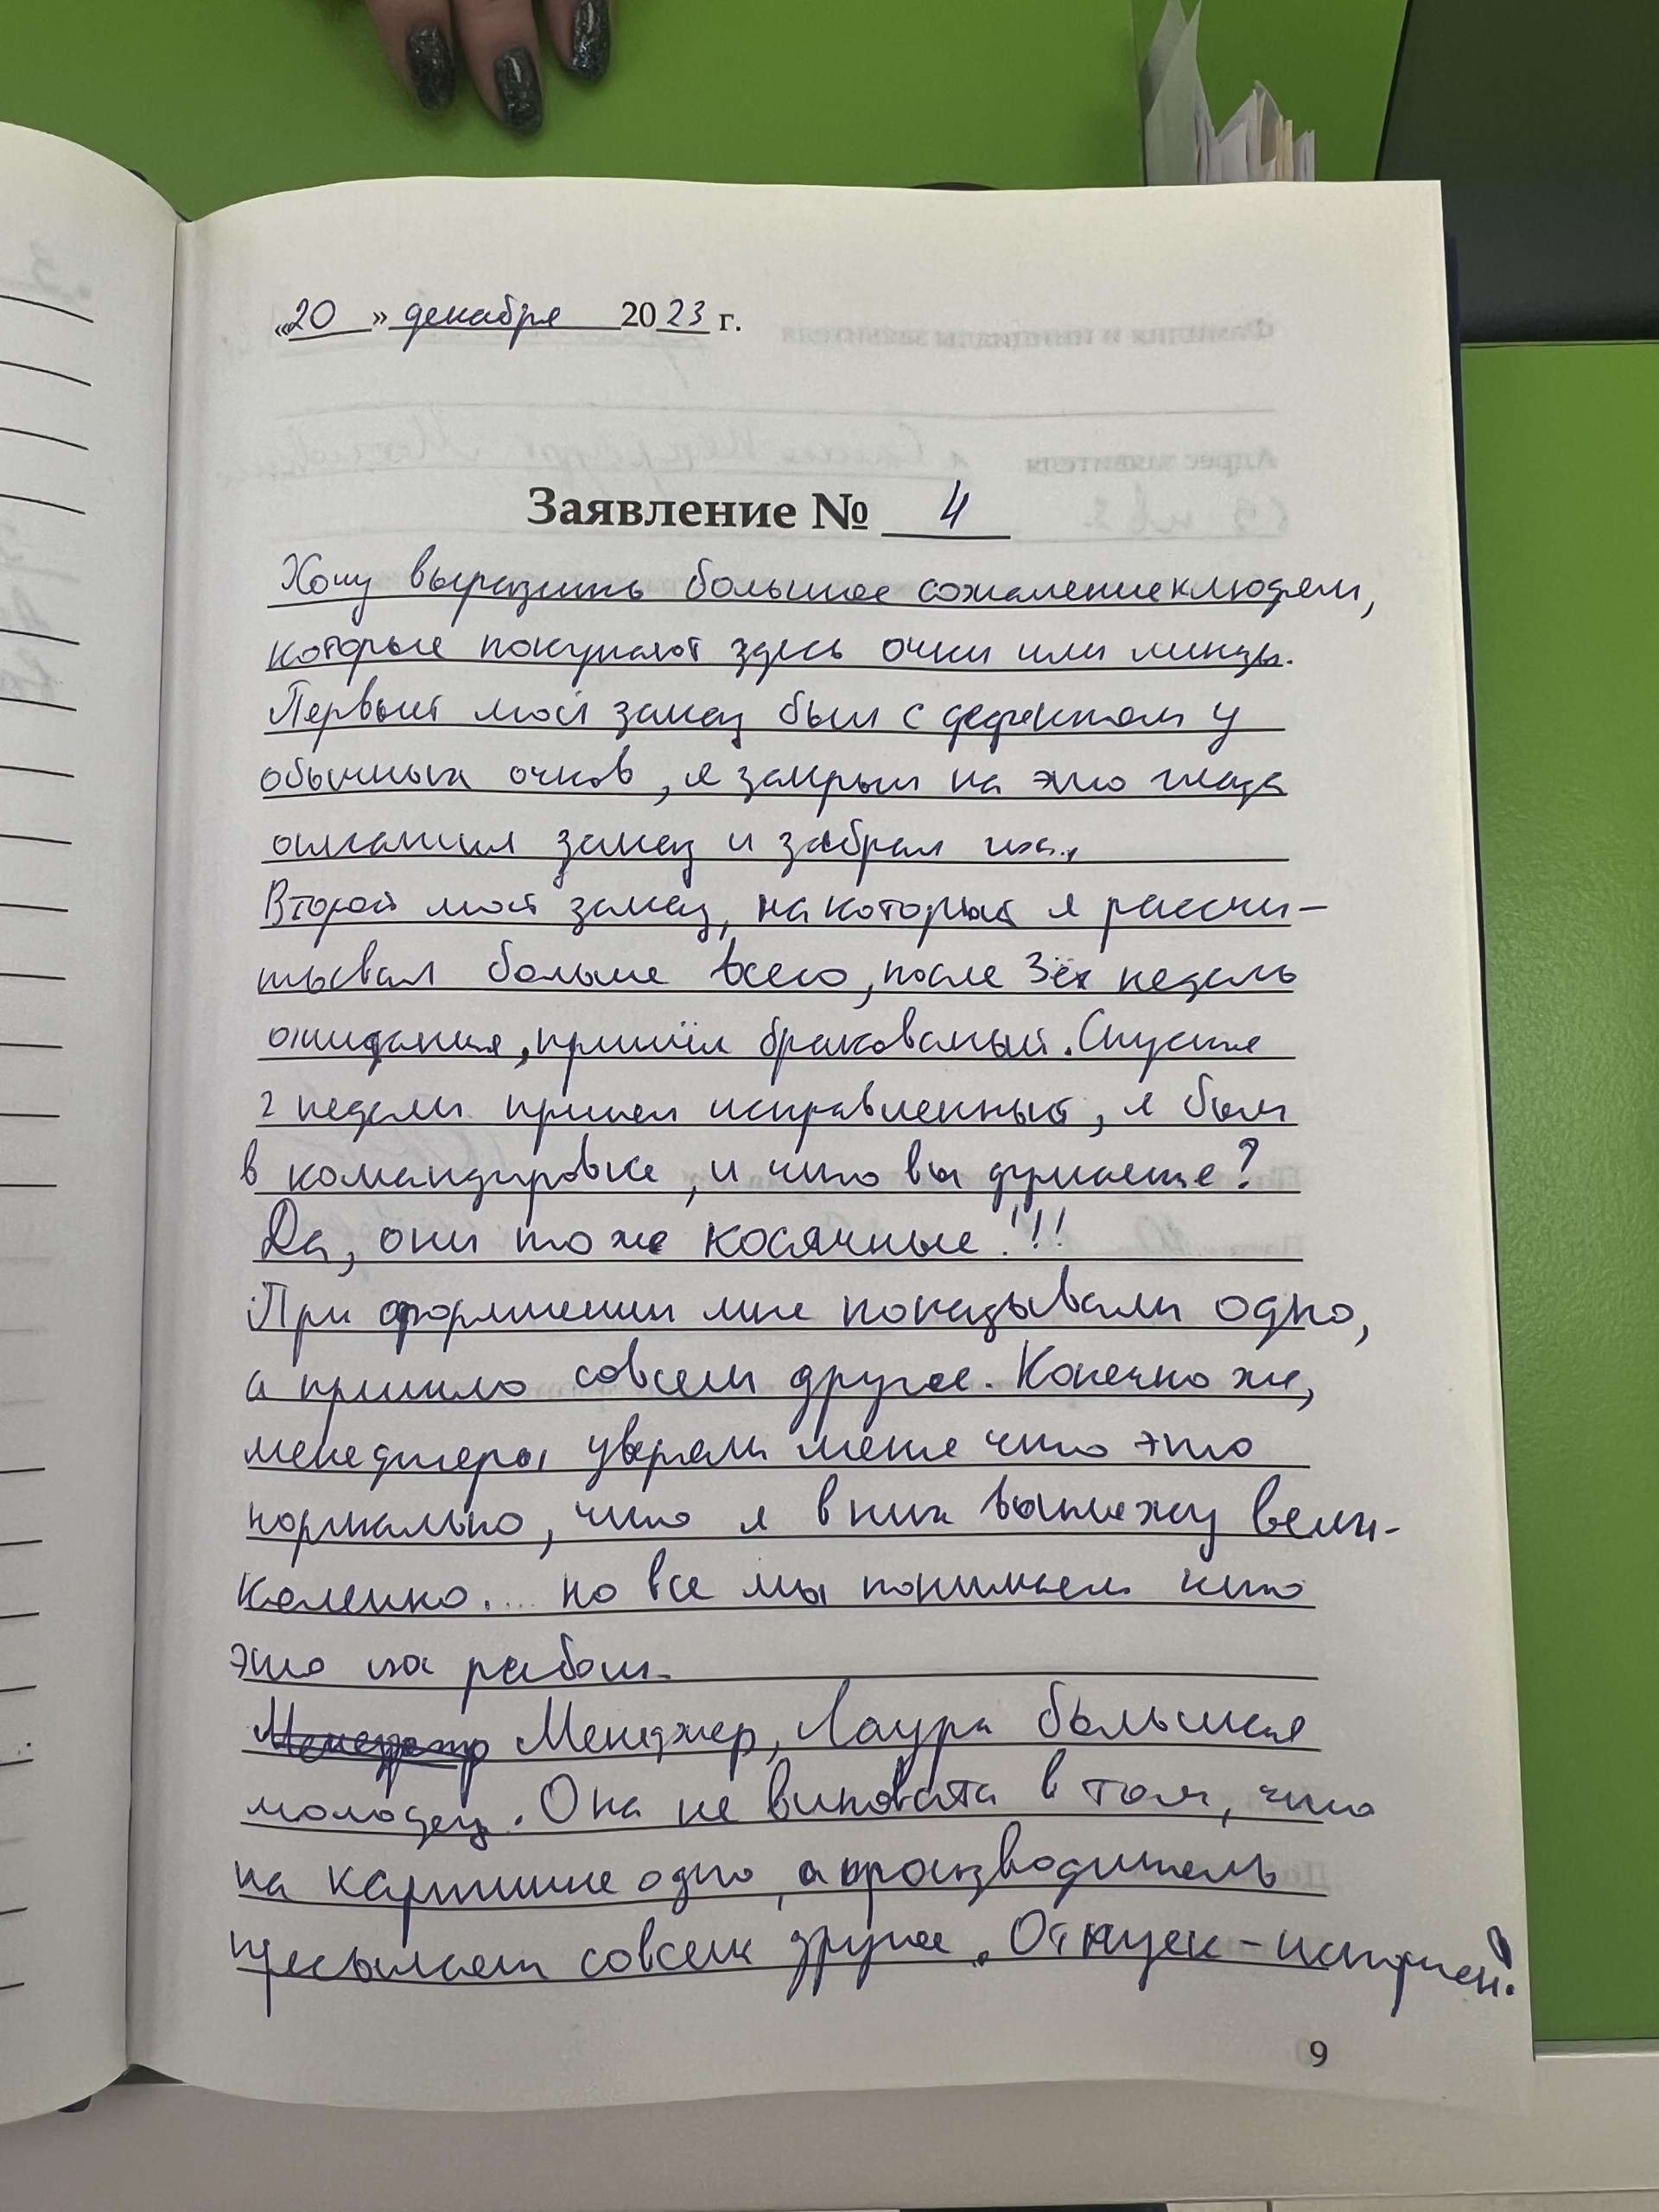 «20» декабря 2023 г.
Заявление № 4
Хочу выразить большое сожаление к людям,
которые покупают здесь очки или линзы.
Первый мой заказ был с дефектом у
обычных очков, я закрыл на это глаза
оплатил заказ и забрал их.
Второй мой заказ, на который я рассчи-
тывал больше всего, после 3ёх недель
ожидания, пришёл бракованый. Спустя
2 недели пришел исправленный, я был
в командировке, и что вы думаете?
Да, они тоже косячные!!!
При оформлении мне показывали одно,
а пришло совсем другое. Конечно же,
менеджеры уверяли меня что это
нормально, что я в них выгляжу вели-
колепно.... но все мы понимаем что
это их работ.
Менеджер, Лаура большая
молодец. Она не виновата в том, что
на картинке одно, а производитель
присылает совсем другое.
9